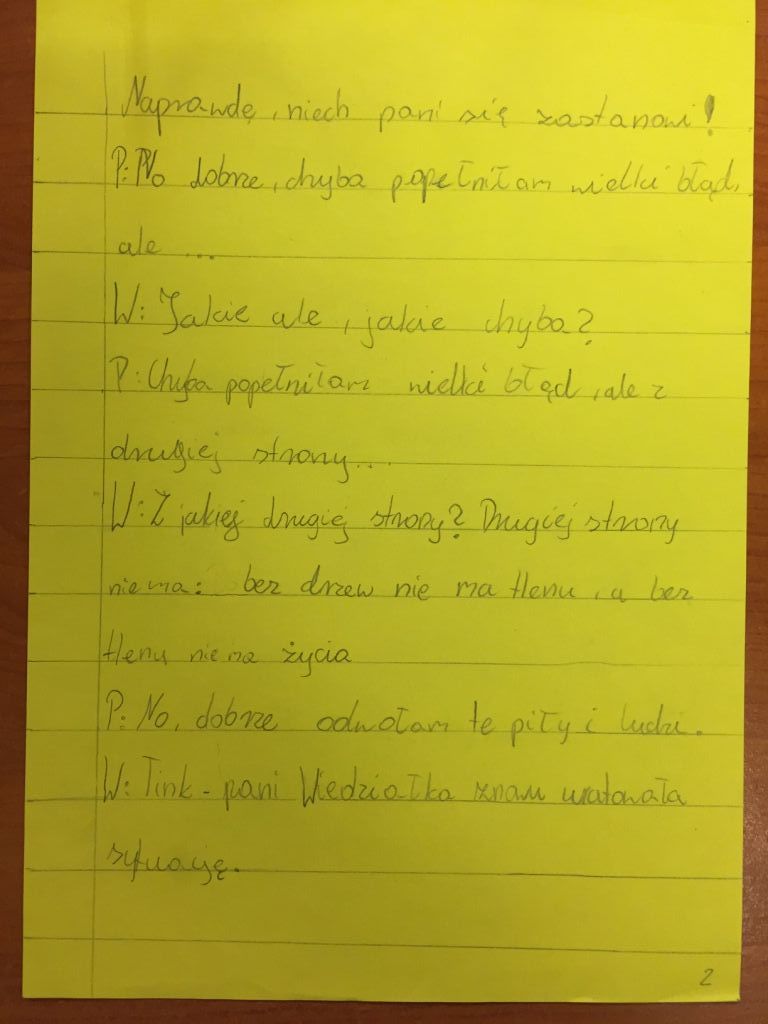 Naprawdę, niech pani się zastanowi!
P: No dobrze, chyba popełniłam wielki błąd,
ale ...
W: Jakie ale, jakie chyba?
P: Chyba popełniłam wielki błąd, ale z
drugiej strony...
W: Z jakiej drugiej strony? Drugiej strony
nie ma: bez drzew nie ma tlenu, a bez
tlenu nie ma życia
P: No, dobrze odwołam te piły i ludzi.
W: Tink - pani Wiedziałka znow uratowała
sytuację.
2